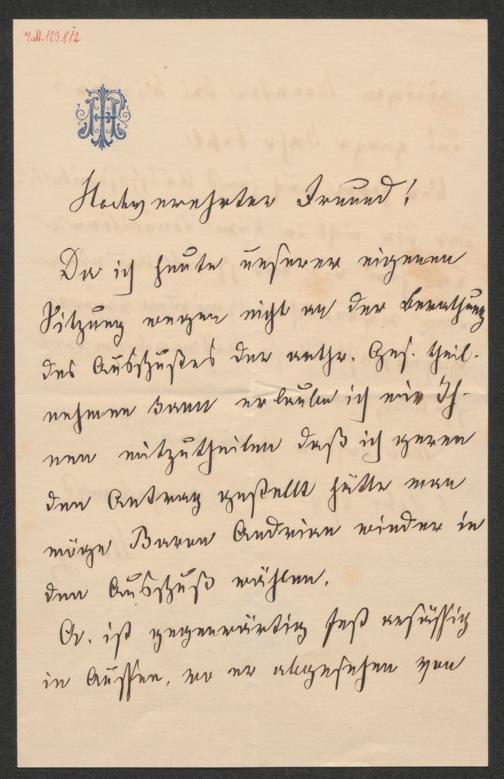 J.N. 123.812
Hochverehrter Freund!
Da ich heute unserer eigenen
Sitzung wegen nicht an der Berathung
des Ausschußes der anthr. Ges. theil-
nehmen kann erlaube ich mir Ih-
nen mitzutheilen daß ich gerne
den Antrag gestellt hätte man
möge Baron Andrian wieder in
den Ausschuß wählen.
Er ist gegenwärtig fest ansässig
in Aussee, wo er abgesehen von